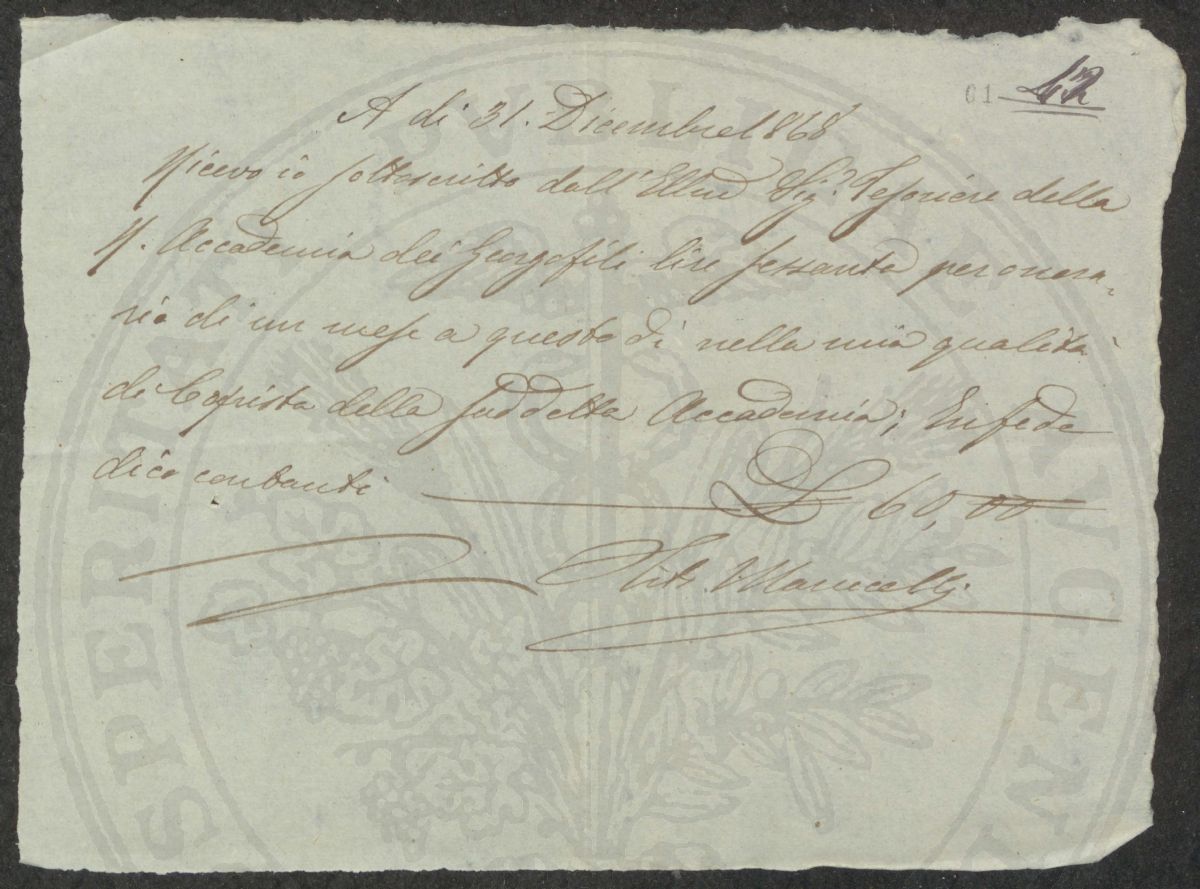 01 42
A dì 31. Dicembre 1868
Ricevo io sottoscritto dall' Sig.r Tesoriere della
R. Accademia dei Georgofili lire sessanta per onora-
rio di un mese a questo dì nella mia qualità
di Copista della suddetta Accademia; In fede
dico contanti £ 60,00
PROSPERITATI PVBLICAE AVGENDAE